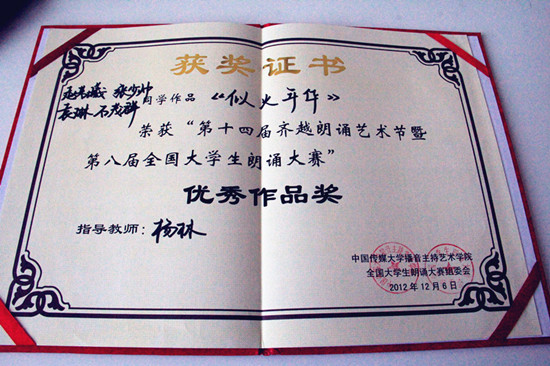 获奖证书
张少帅
袁琳 石茂祥 同学作品 《似火年华》
荣获“第十四届齐越朗诵艺术节暨
第八届全国大学生朗诵大赛”
优秀作品奖
指导教师：杨林
中国传媒大学播音主持艺术学院
全国大学生朗诵大赛组委会
2012年12月6日